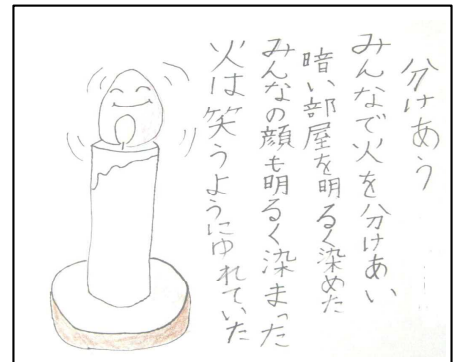 分けあう
みんなで火を分けあい
暗い部屋を明るく染めた
みんなの顔も明るく染まった
火は笑うようにゆれていた